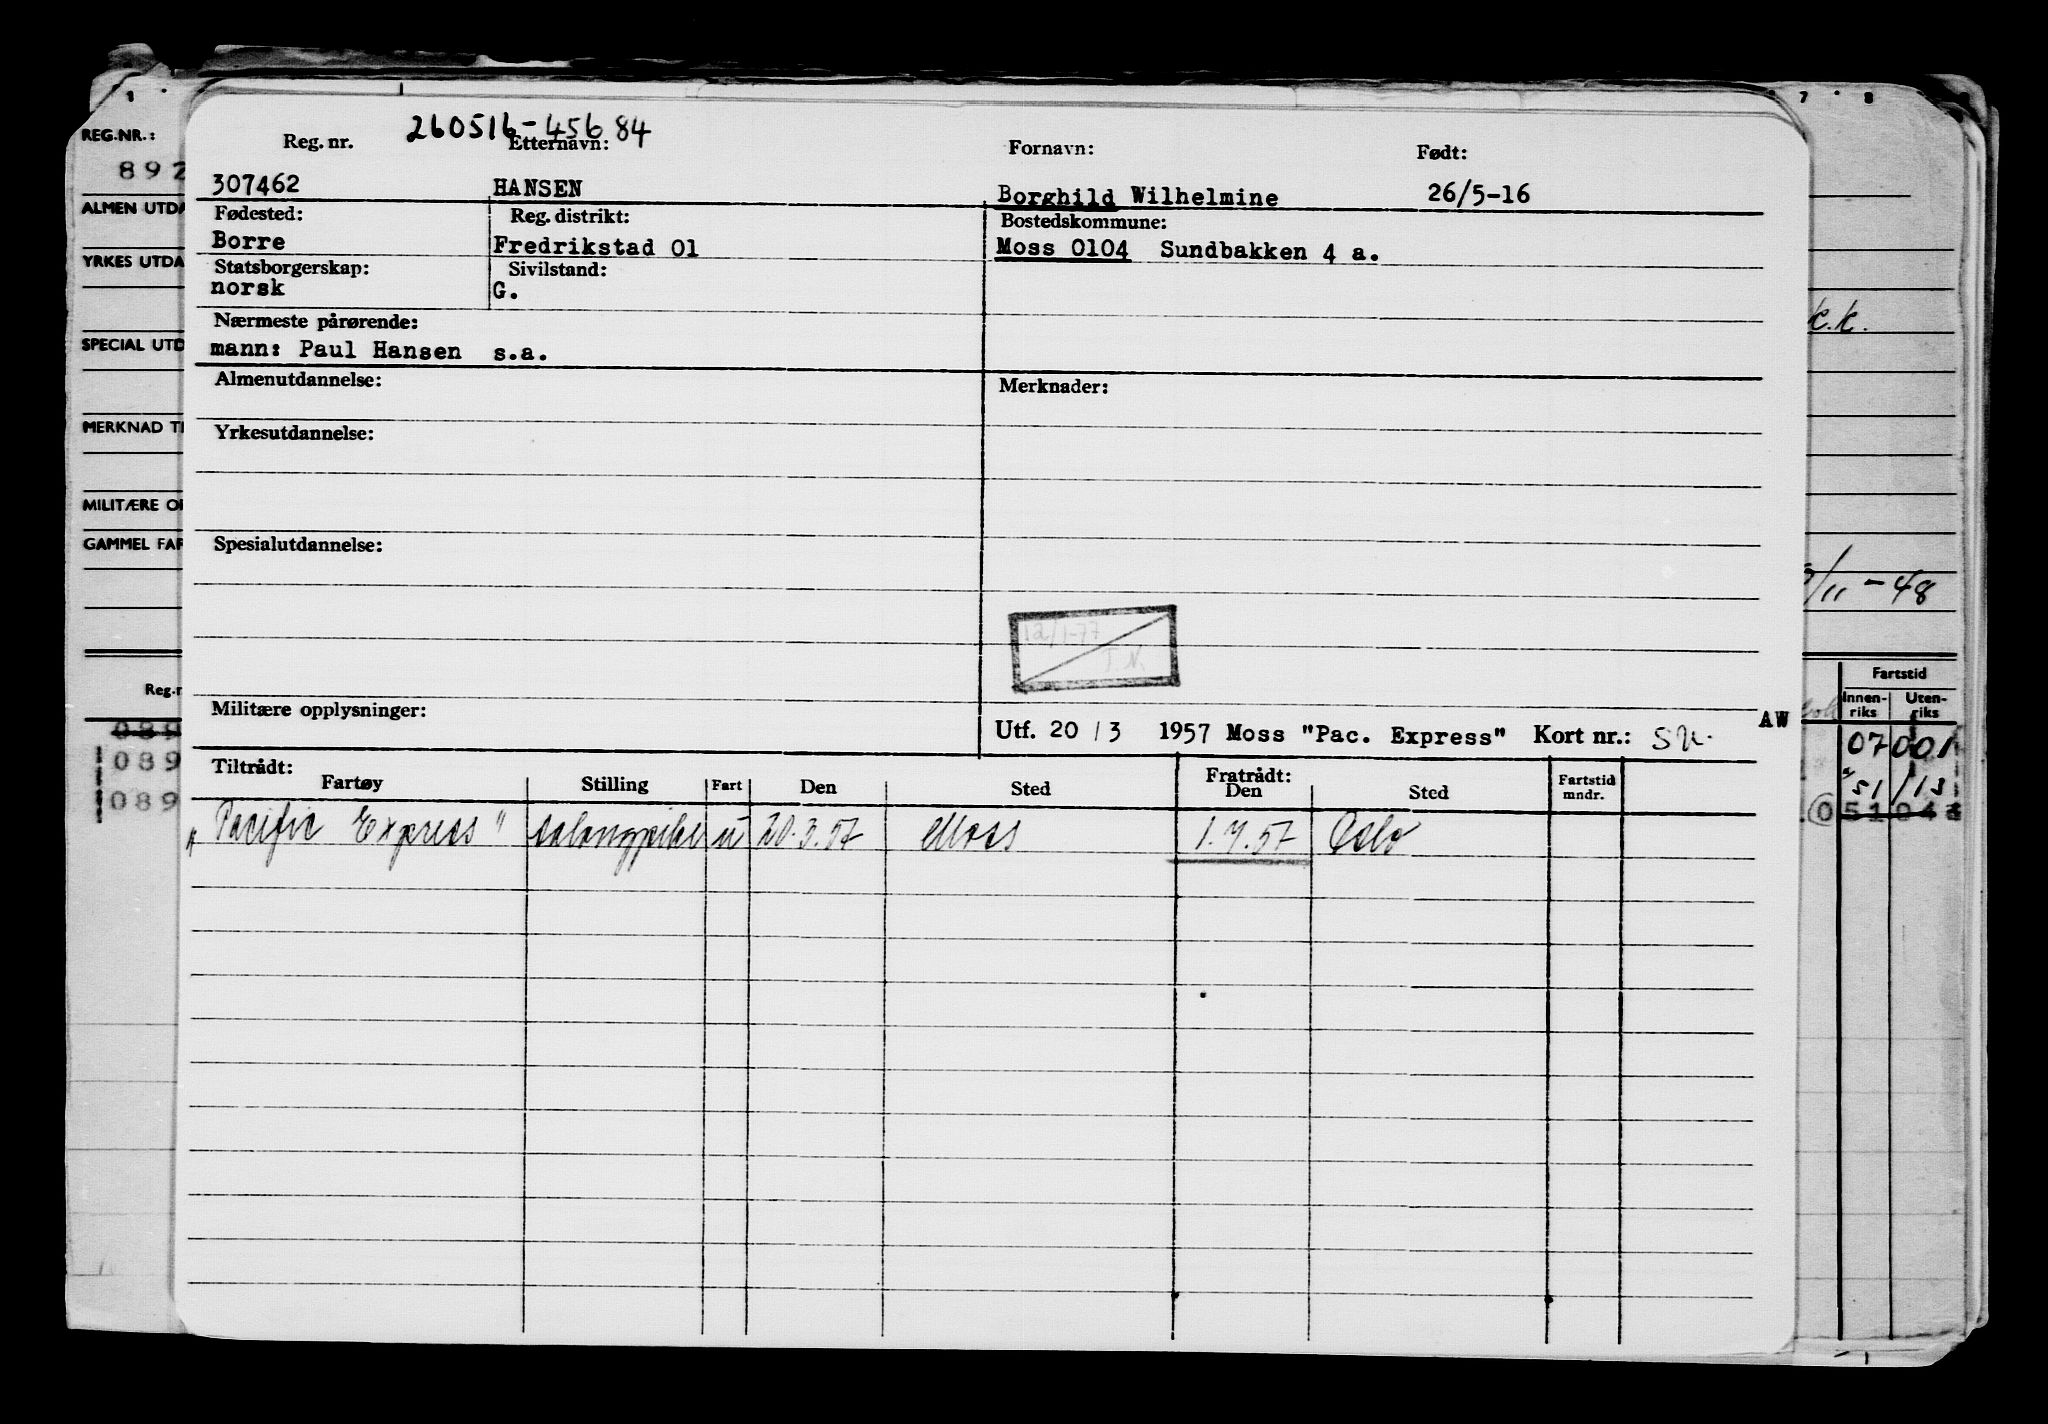 260516-45684
Reg. nr. Etternavn: Fornavn: Født:
307462 HANSEN Borghild Wilhelmine 26/5-16
Fødested: Reg. distrikt: Bostedskommune:
Borre Fredrikstad 01 Moss 0104 Sundbakken 4 a.
Statsborgerskap: Sivilstand:
norsk G.
Nærmeste pårørende:
mann: Paul Hansen s.a.
Almenutdannelse: Merknader:
Yrkesutdannelse:
Spesialutdannelse:
12/1-77
T.N.
Militære opplysninger:
Utf. 20 / 3 1957 Moss "Pac. Express" Kort nr.: AW
Tiltrådt: Fratrådt:
Fartøy Stilling Fart Den Sted Den Sted Fartstid mndr.
"Pacific Express" salongpike u 20.3.57 Moss 1.4.57 Oslo
1
REG.NR.:
892
ALMEN UTDA
YRKES UTDA
SPECIAL UTD
MERKNAD TI
MILITÆRE OP
GAMMEL FAR
Reg.n
089
089
089
7 8
k.k.
/11-48
Fartstid
Innen-riks Uten-riks
07 001
51 113
0 51 043